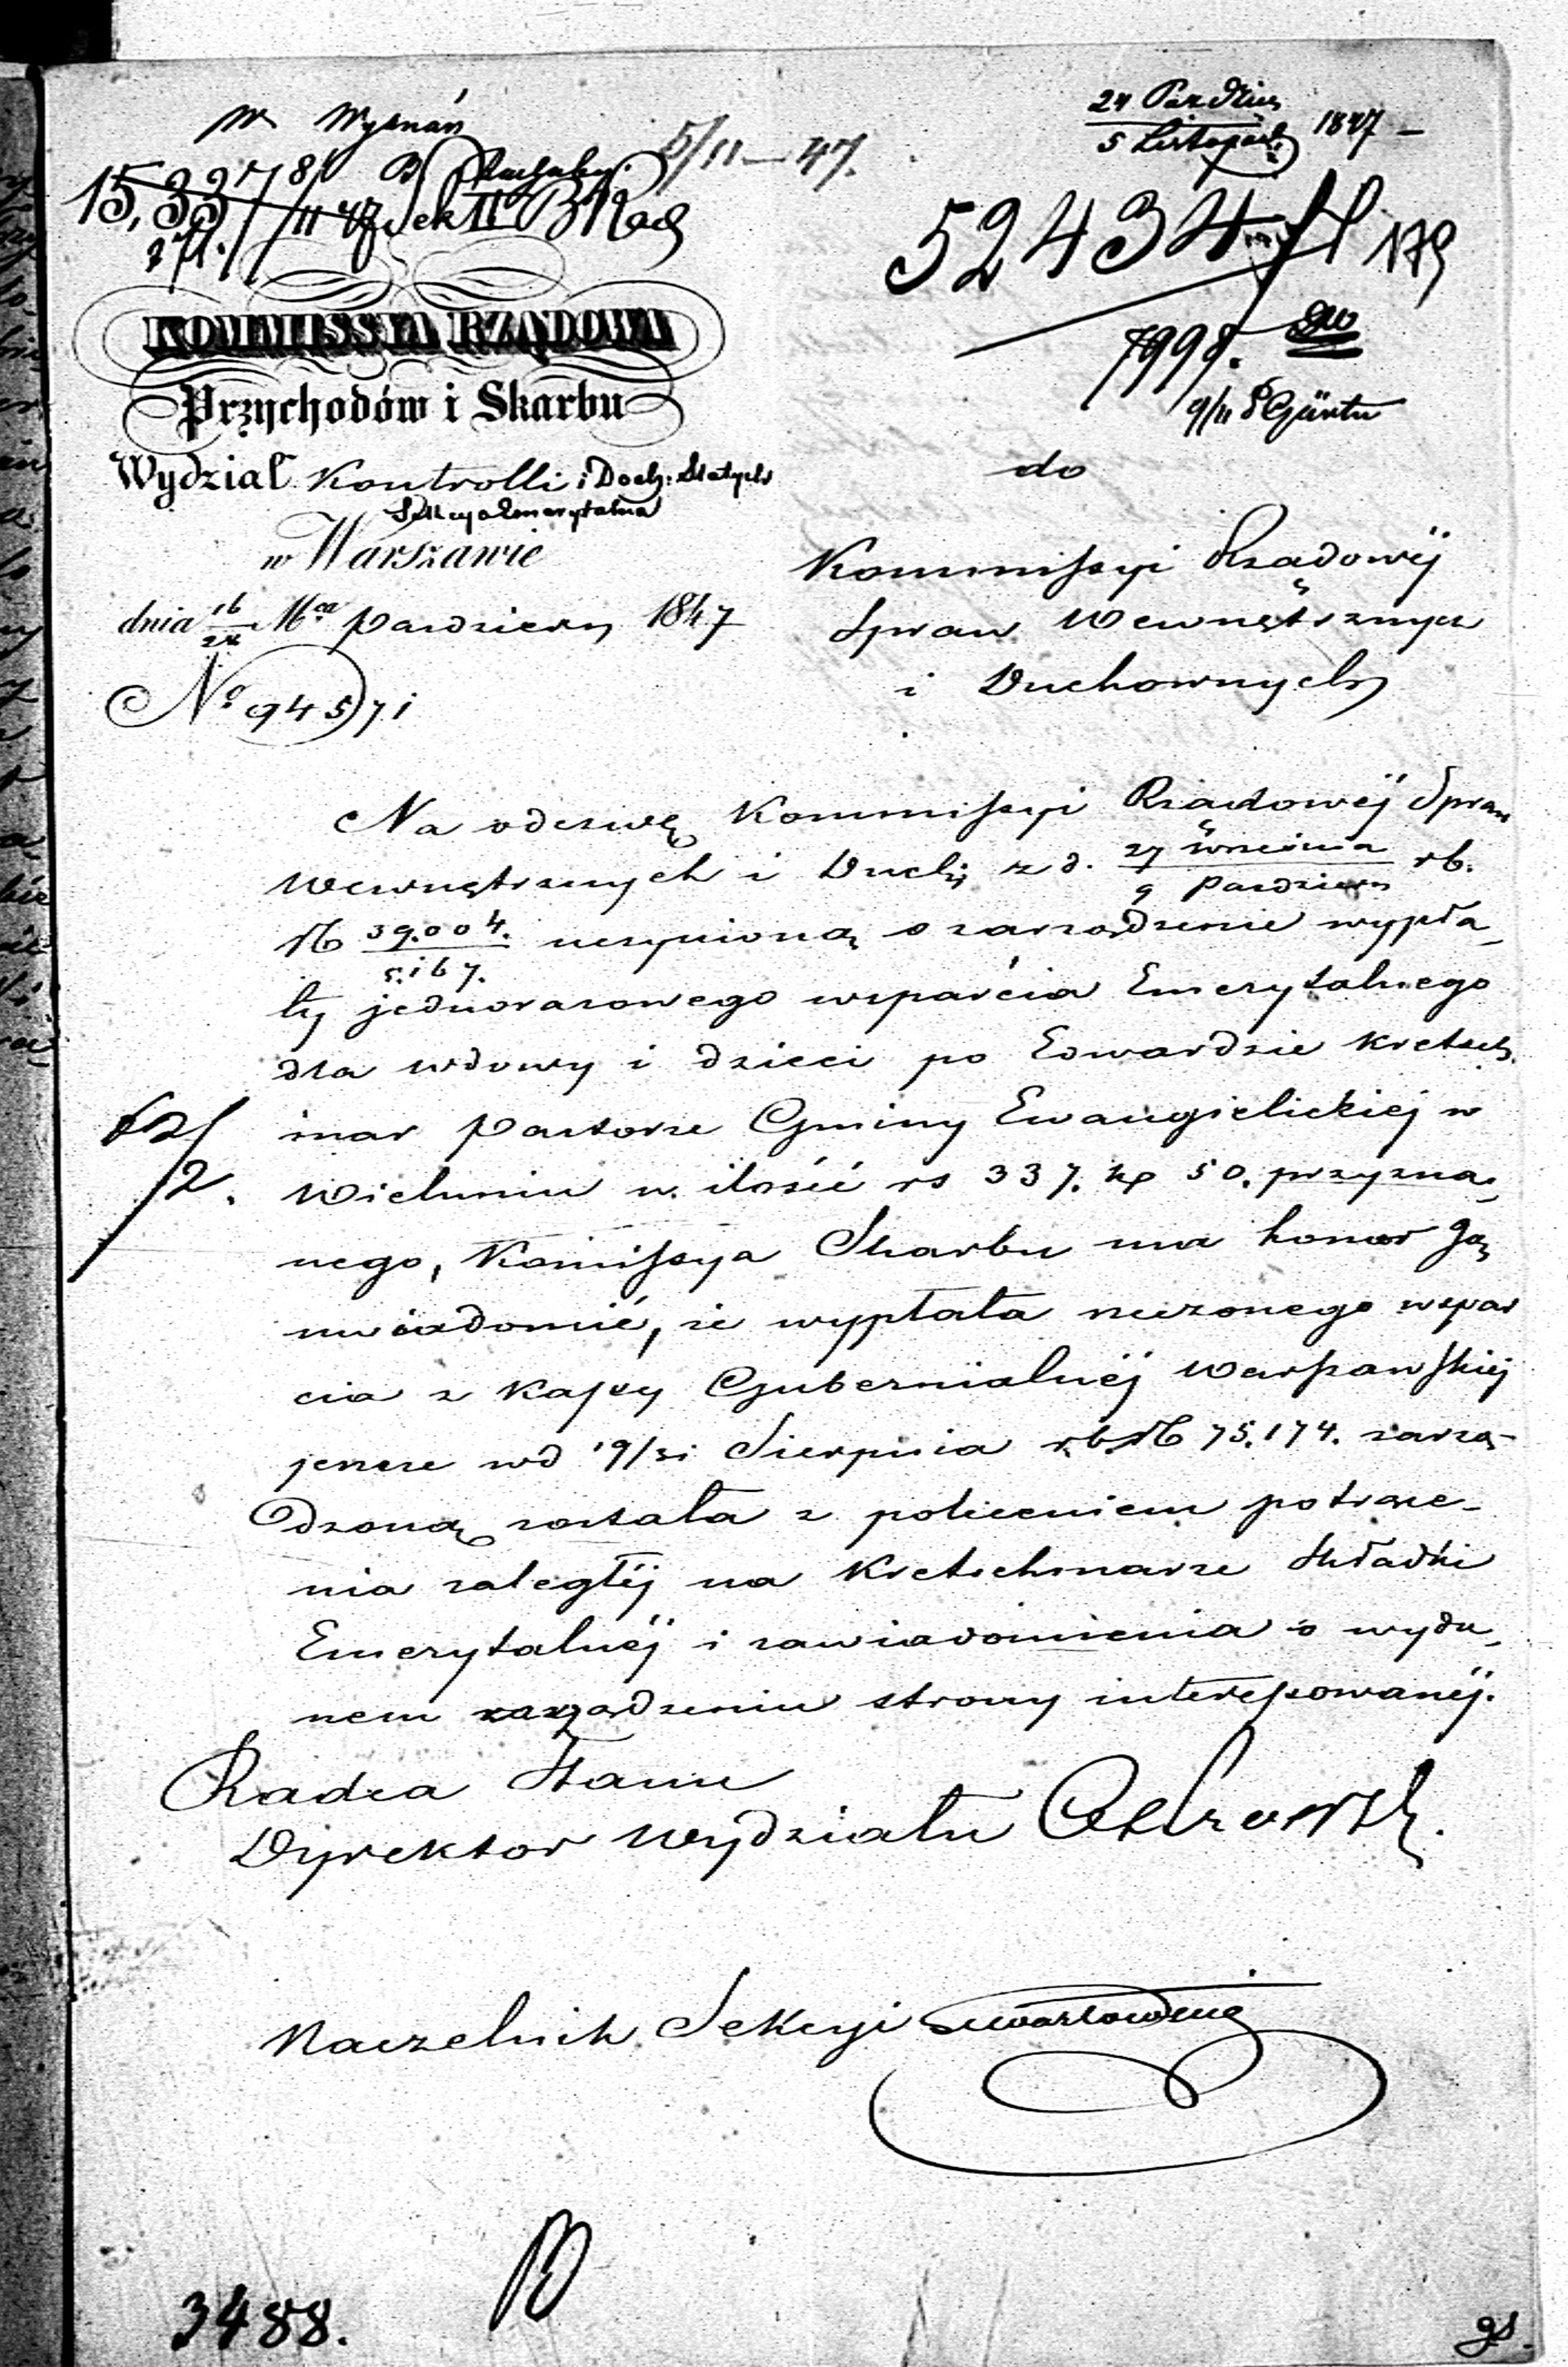 W. Wyznań
5/11 – 47.
24 Paździer
5 Listopada 1847 –
15,337 8/11 47 Sek II B Rad
52434 179
7999.
9/11
KOMMISSYA RZĄDOWA
Przychodów i Skarbu
Wydział Kontrolli i Doch: Stałych
Sekcya Emerytalna
w Warszawie
dnia 16/28 Mca Październ 1847
No 94571
do
Kommissyi Rządowéj
Spraw Wewnętrznych
i Duchownych
Na odezwę Kommissyi Rządowéj Spraw
Wewnętrznych i Duch: z d. 27 Września / 9 Październ rb.
N 39.004. / 5.167. uczynioną o zarządzenie wypła-
ty jednorazowego wsparcia Emerytalnego
dla wdowy i dzieci po Edwardzie Kretsch-
mar Pastorze Gminy Ewangielickiej w
Wieluniu w ilości rs 337. kp 50. przyzna-
nego, Komissya Skarbu ma honor Ją
uwiadomić, że wypłata rzeczonego wspar
cia z Kassy Gubernialnéj Warszawskiej
jeszcze w d 19/31 Sierpnia r.b. N 75.174. zarzą-
dzoną została z poleceniem potrące-
nia zaległéj na Kretschmarze Składki
Emerytalnéj i zawiadomienia o wyda-
nem zarządzeniu strony interessowanéj.
Radca Stanu
Dyrektor Wydziału
Naczelnik Sekcyi
3488.